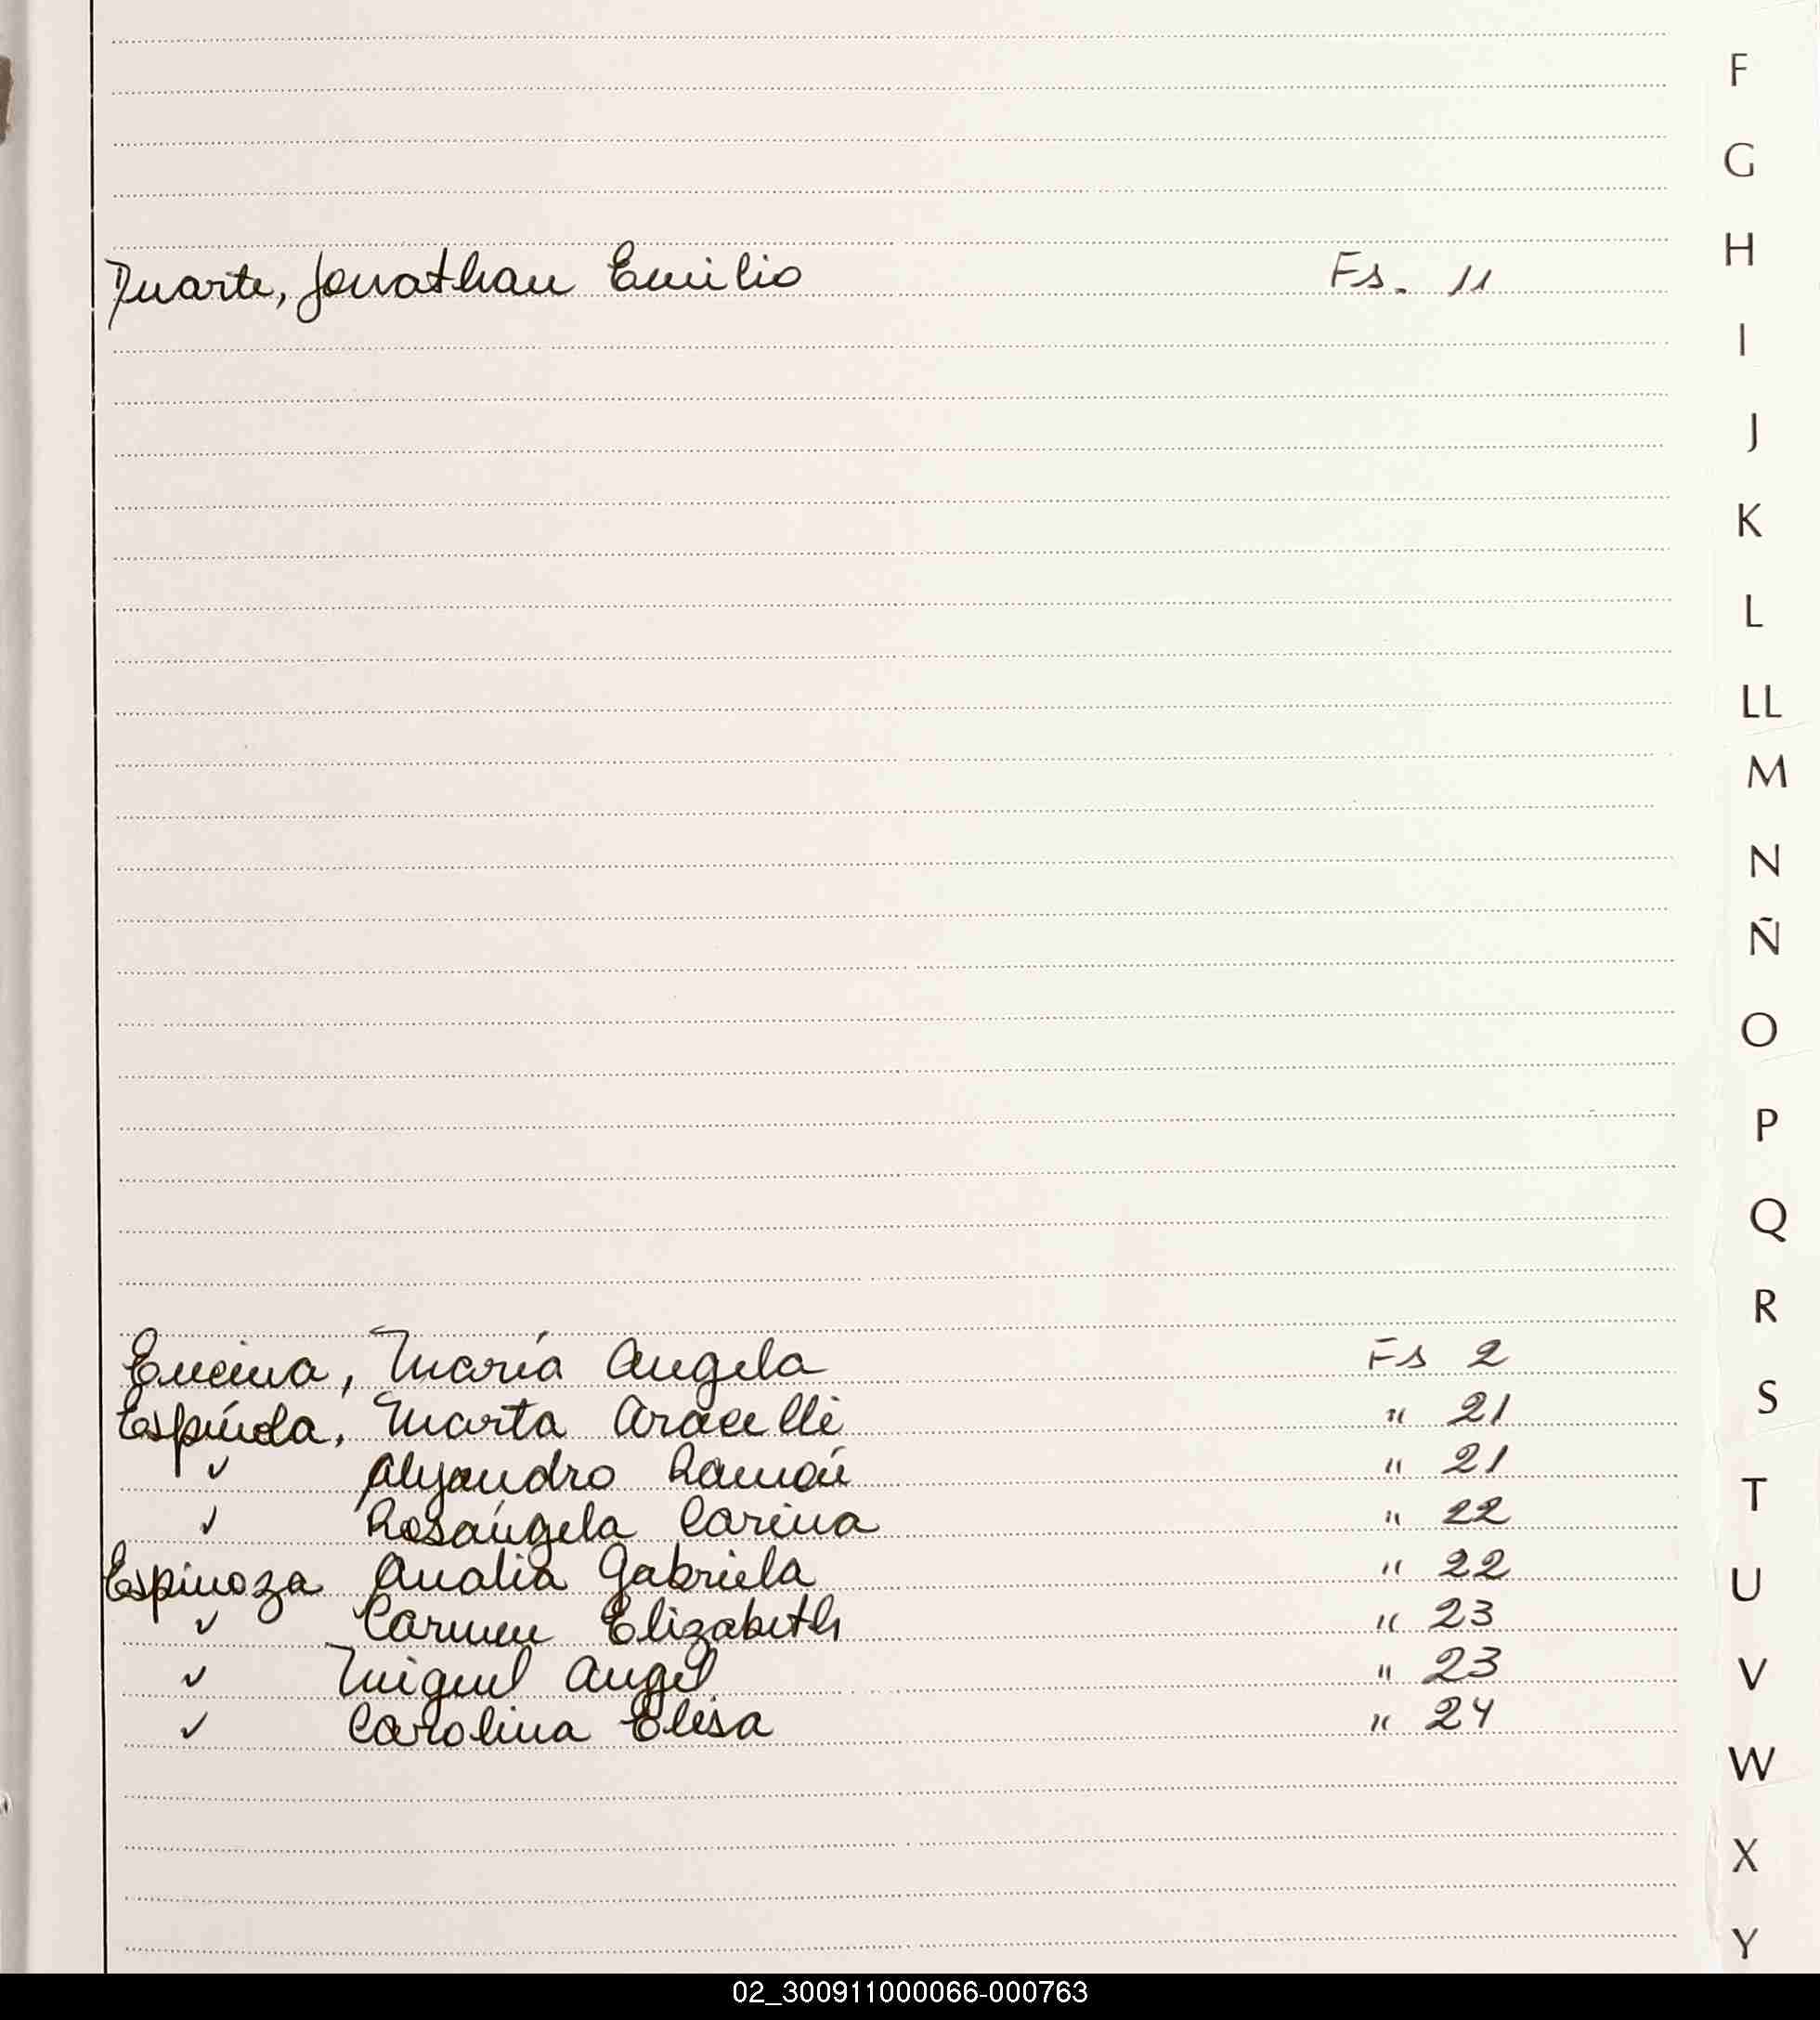 F
G
H
Duarte, Jonathan Emilio Fs. 11
I
J
K
L
LL
M
N
Ñ
O
P
Q
R
Encina, María Angela Fs 2
Espíndola, Marta Aracelli " 21
S
✓ Alejandro Ramón " 21
T
✓ Rosángela Carina " 22
Espinoza Analia Gabriela " 22
U
✓ Carmen Elizabeth " 23
✓ Miguel Angel " 23
V
✓ Carolina Elisa " 24
W
X
Y
02_300911000066-000763